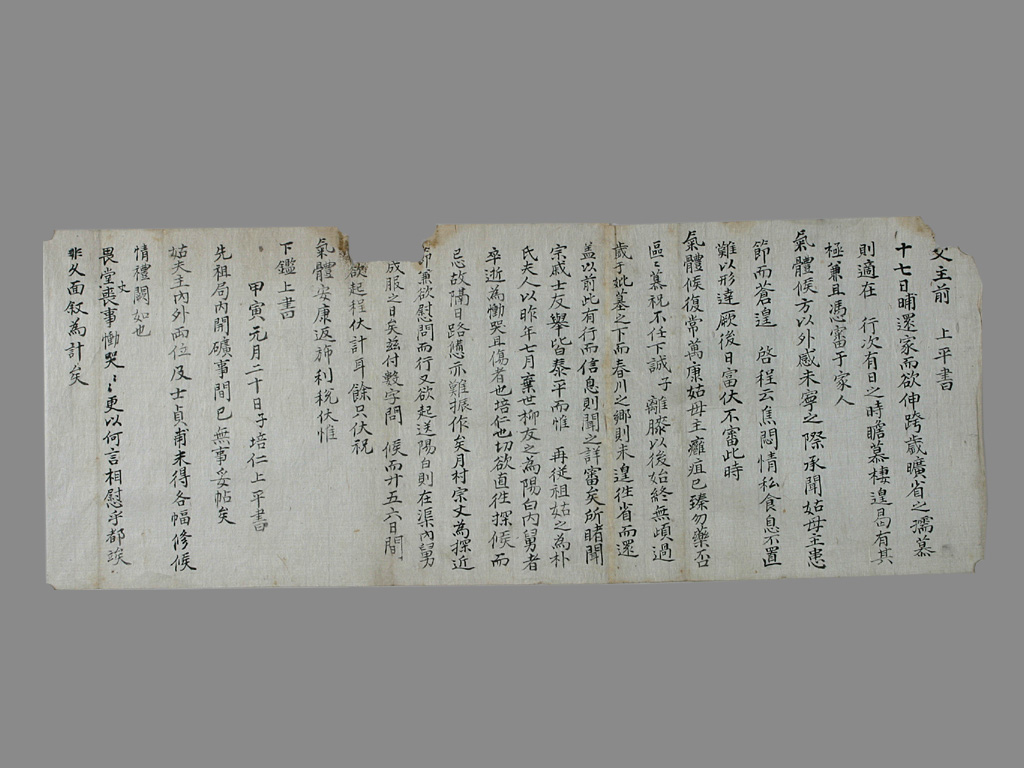 父主前 上平書
十七日晡還家而欲伸跨歲曠省之濡慕
則適在 行次有日之時瞻慕棲遑曷有其
極兼且憑審于家人
氣體候方以外感未寧之際承聞姑母主患
節而蒼遑 啓程云焦悶情私食息不置
難以形達厥後日富伏不審此時
氣體候復常萬康姑母主癰疽已臻勿藥否
區區慕祝不任下誠子 離膝以後始終無頉過
歲于 墓之下而春川之鄉則未遑徃省而還
盖以前此有行而信息則聞之詳審矣所睹聞
宗戚士友擧皆泰平而惟 再從祖姑之爲朴
氏夫人以昨年七月棄世柳友之爲陽白內舅者
卒逝爲慟哭且傷者也培仁也切欲直徃探候而
忌故隔日路憊亦難振作矣月村宗丈爲探近
節兼欲慰問而行又欲起送陽白則在渠內舅
成服之日矣玆付數字問 候而廾五六日間
欲起程伏計耳餘只伏祝
氣體安康返旆利稅伏惟
下鑑上書
甲寅元月二十日子培仁上平書
先祖局內開礦事間已無事妥帖矣
姑夫主內外兩位及士貞甫未得各幅修候
情禮闕如也
畏堂丈喪事慟哭〻〻更以何言相慰乎都竢
非久面叙爲計矣